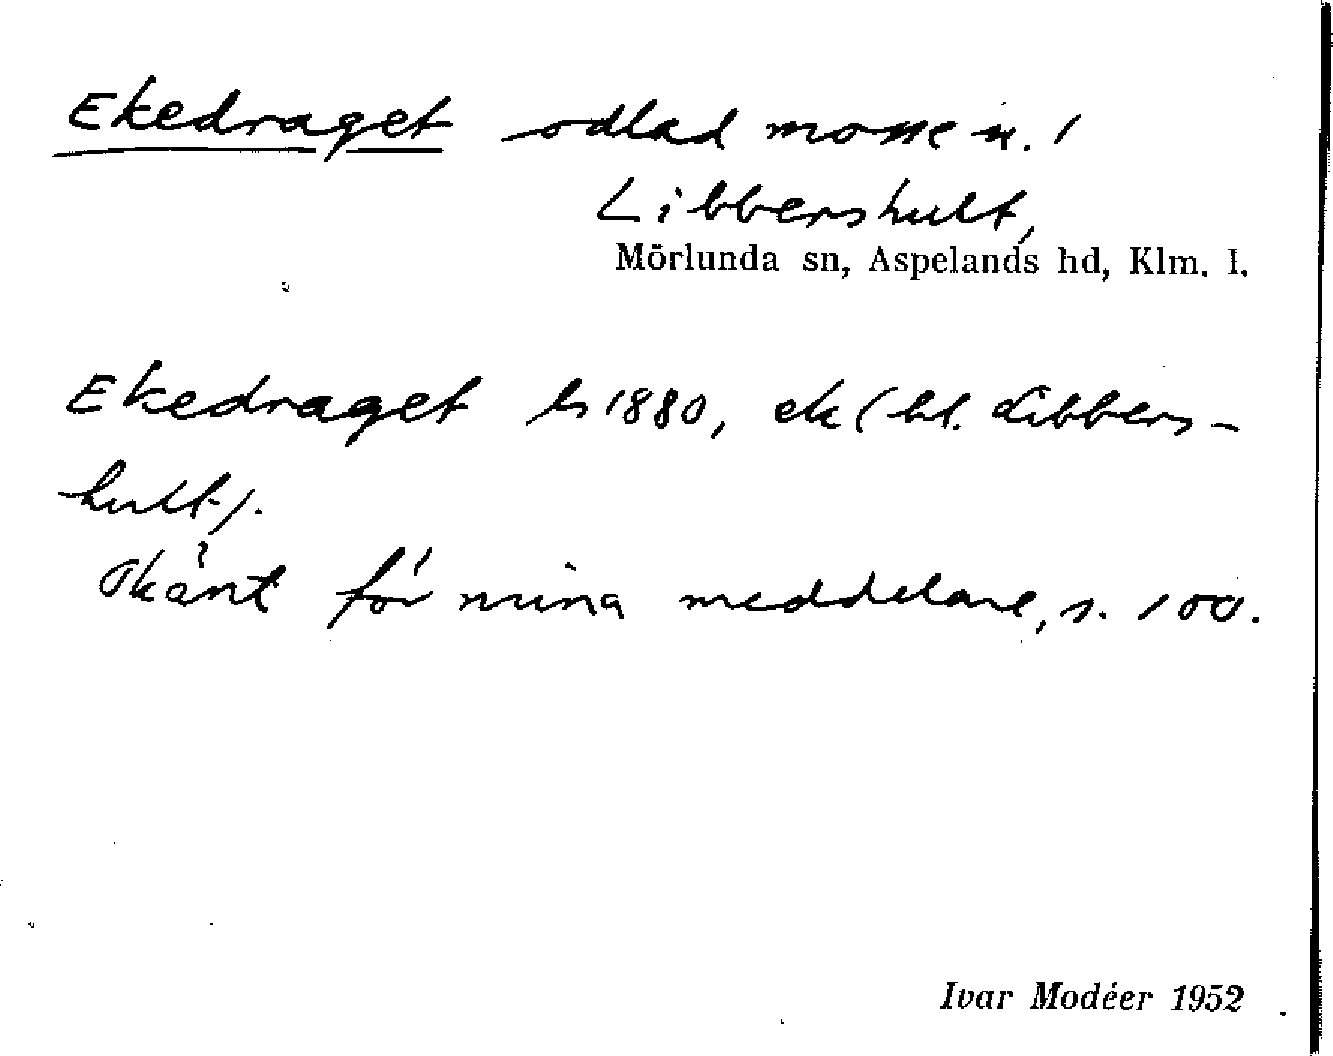 Ekedraget odlad mosse u. /
Libbershult,
Mörlunda sn, Aspelands hd, Klm. l.
Ekedraget ls 1880, ek (bl. Libbers-
hult).
Okänt för mina meddelare, s. 100.
Ivar Modéer 1952